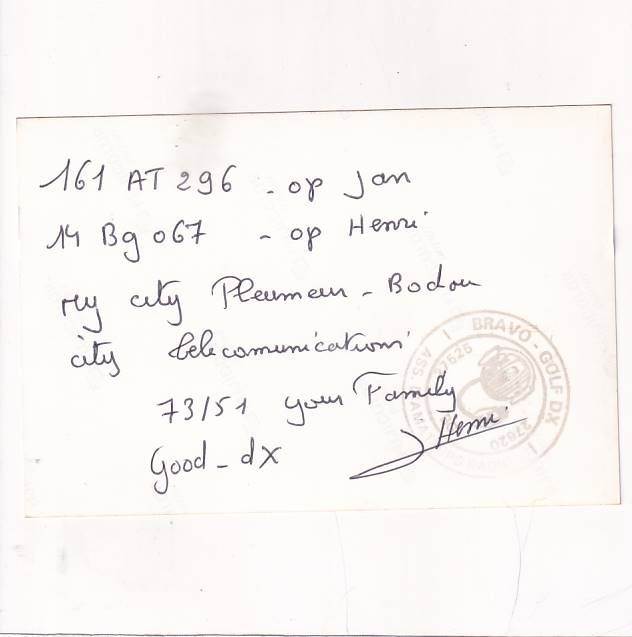 161 AT 296 - op Jan
14 Bg 067 - op Henri
My city Pleumeur - Bodou
city telecomunications
73/51 your Family
Good - dx
Henri
BRAVO - GOLF DX
27620